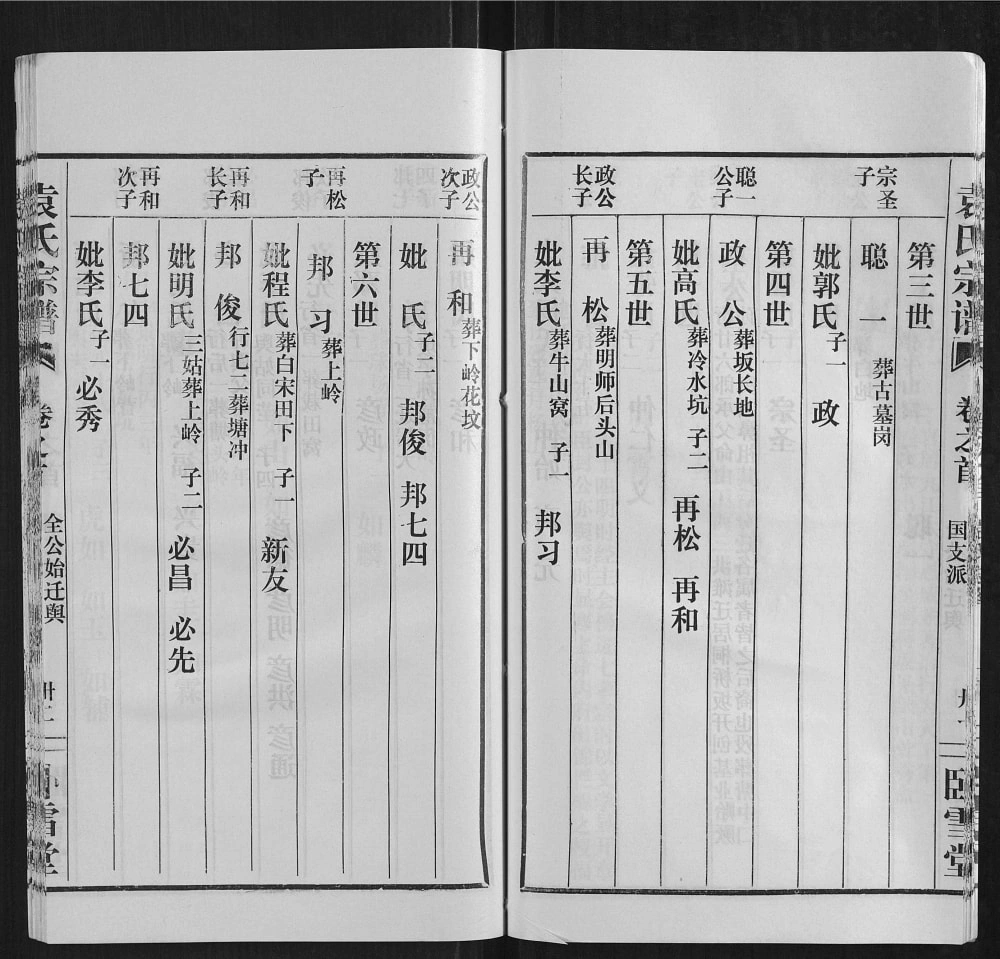 袁氏宗谱 卷之首 国支派 卅一 卧雪堂
第三世
宗圣子
聪一 葬古墓岗
妣郭氏 子一 政
第四世
聪一公子
政公 葬坂长地
妣高氏 葬冷水坑 子二 再松 再和
第五世
政公长子
再松 葬明师后头山
妣李氏 葬牛山窝 子一 邦习
政公次子
再和 葬下岭花坟
妣 氏 子二 邦俊 邦七四
第六世
再松子
邦习 葬上岭
妣程氏 葬白宋田下 子一 新友
再和长子
邦俊 行七二葬塘冲
妣明氏 三姑葬上岭 子二 必昌 必先
再和次子
邦七四
妣李氏 子一 必秀
袁氏宗谱 卷之首 全公始迁舆 卅二 卧雪堂